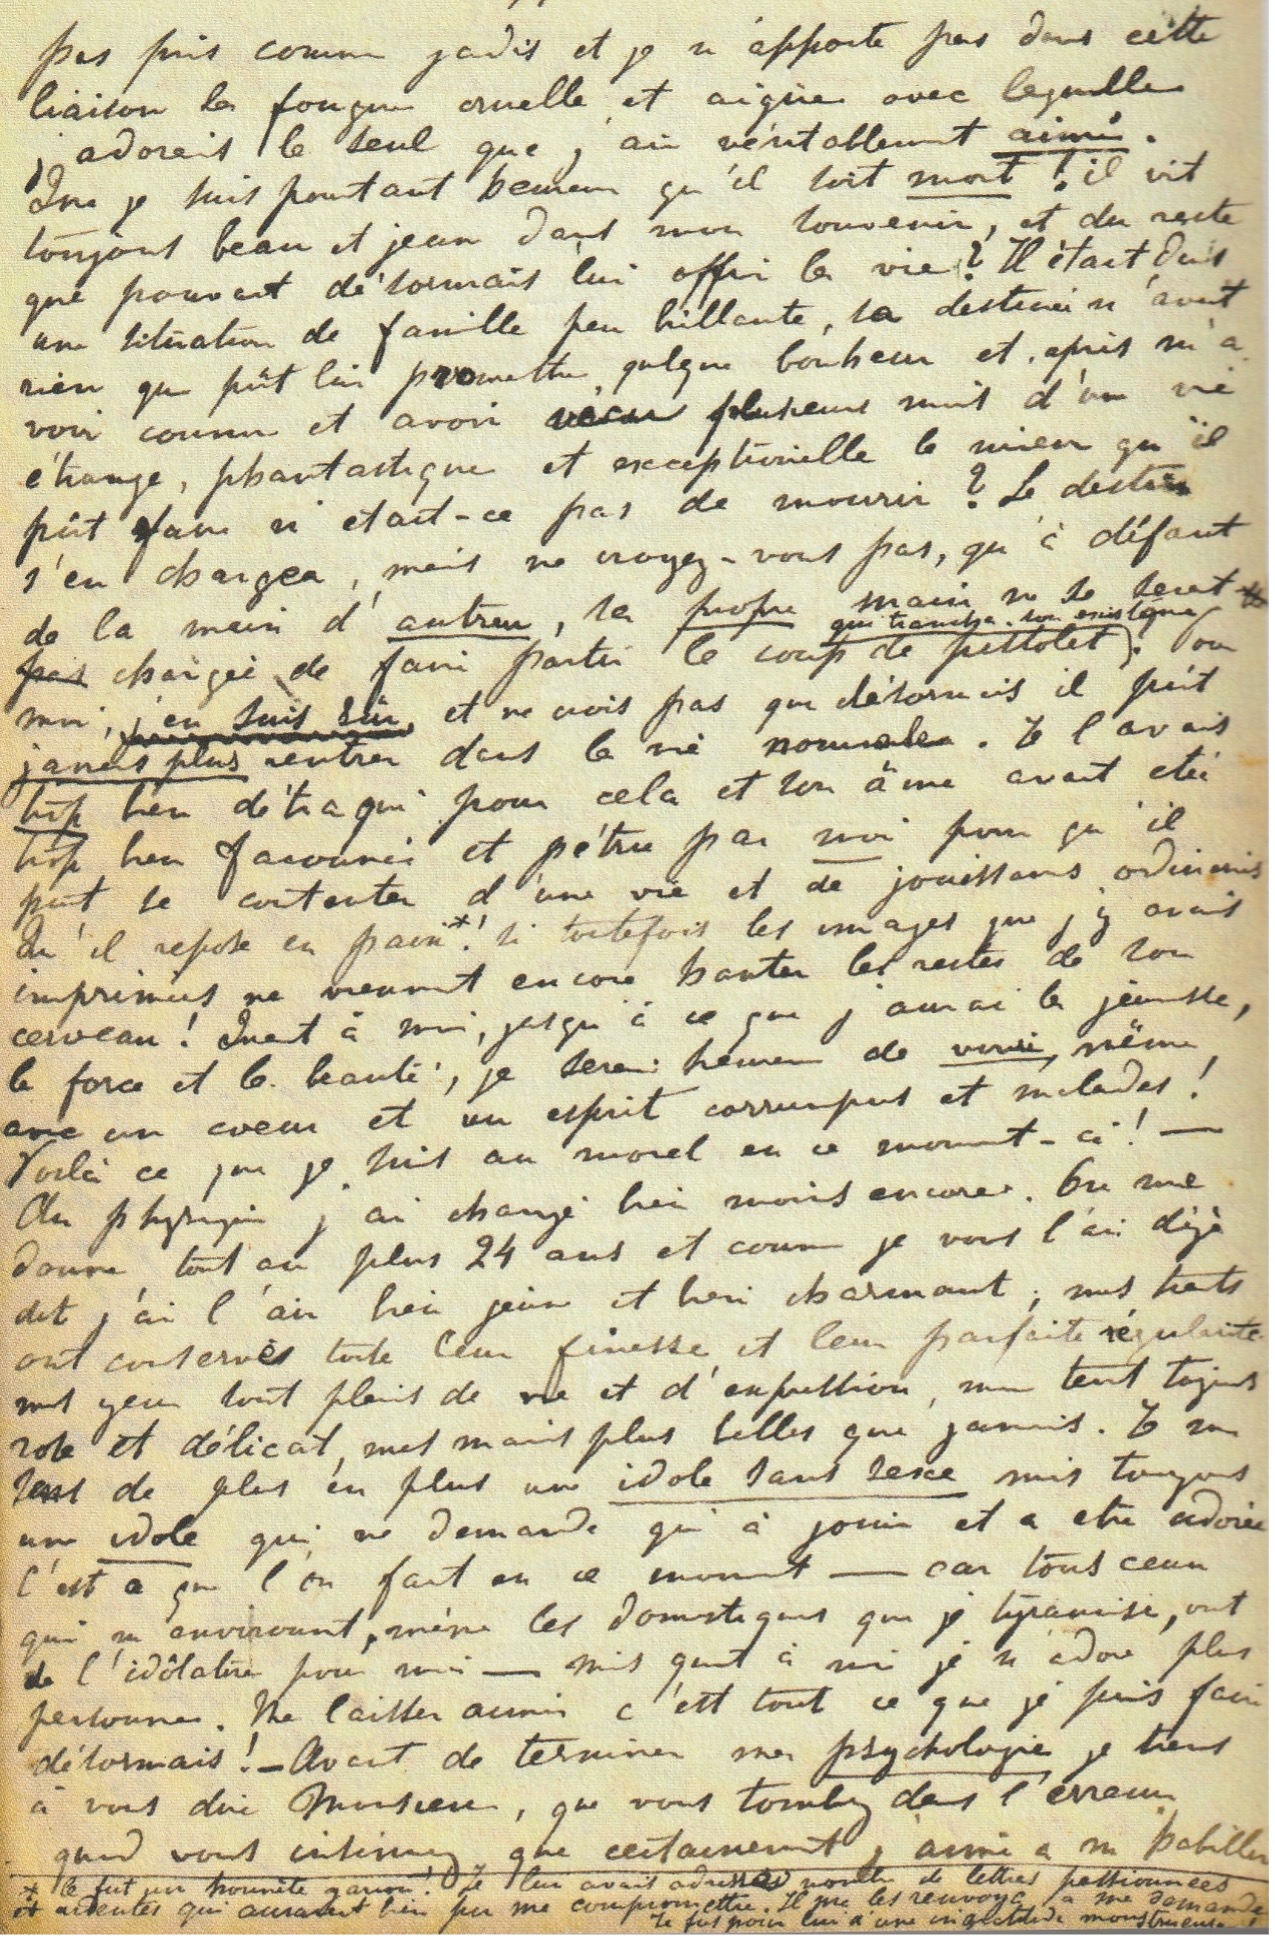 pas pris comme jadis et je n'apporte pas dans cette
liaison la fougue cruelle et aigüe avec laquelle
j'adorais le seul que j'ai véritablement aimé.
Que je suis pourtant heureux qu'il soit mort ! il vit
toujours beau et jeune dans mon souvenir, et du reste
que pouvait désormais lui offrir la vie ? Il était dans
une situation de famille peu brillante, sa destinée n'avait
rien qui pût lui promettre quelque bonheur et après m'a
voir connu et avoir vécu plusieurs mois d'une vie
étrange, phantastique et exceptionnelle le mieux qu'il
pût faire n'était-ce pas de mourir ? Le destin
s'en chargea, mais ne croyez-vous pas, qu'à défaut
de la main d'autrui, sa propre main ne se serait
qui trancha son existence
pas chargée de faire partir le coup de pistolet). Pour
moi, j'en suis sûr, et ne crois pas que désormais il pût
jamais plus rentrer dans la vie normale. Je l'avais
trop bien détraqué pour cela et son âme avait été
trop bien façonnée et pétrie par moi pour qu'il
pût se contenter d'une vie et de jouissances ordinaires
Qu'il repose en paix*! si toutefois les images que j'y avais
imprimées ne viennent encore hanter les restes de son
cerveau ! Quant à moi, jusqu'à ce que j'aurai la jeunesse,
la force et la beauté, je serai heureux de vivre, même
avec un coeur et un esprit corrumpus et malades !
Voilà ce que je suis au moral en ce moment-ci ! —
Au physique j'ai changé bien moins encore. On me
donne tout au plus 24 ans et comme je vous l'ai déjà
dit j'ai l'air bien jeune et bien charmant ; mes traits
ont conservés toute leur finesse et leur parfaite régularité
mes yeux sont pleins de vie et d'expression, mon teint toujours
rose et délicat, mes mains plus belles que jamais. Je me
sens de plus en plus une idole sans sexe mais toujours
une idole qui ne demande qu'à jouir et a etre adorée
C'est ce que l'on fait en ce moment — car tous ceux
qui m'environnent, même les domestiques que je tyrannise, ont
de l'idôlatrie pour moi — mais quant à moi je n'adore plus
personne. Me laisser aimer c'est tout ce que je puis faire
désormais ! — Avant de terminer ma psychologie je tiens
à vous dire Monsieur, que vous tombez dans l'erreur
quand vous insinuez que certainement j'aime a m'habiller
* Ce fut un honnête garçon ! Je lui avais adressé nombre de lettres passionnées
et ardentes qui auraient bien pu me compromettre. Il me les renvoya a ma demande
Je fus pour lui d'une ingratitude monstrueuse !